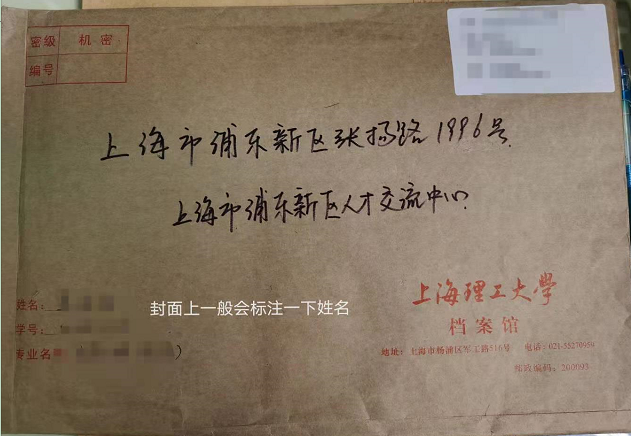 密级 机密
编号
上海市浦东新区张扬路1996号.
上海市浦东新区人才交流中心.
姓名:
封面上一般会标注一下姓名
学号:
专业名
上海理工大學
档案馆
地址: 上海市杨浦区军工路516号 电话: 021-55270959
邮政编码: 200093